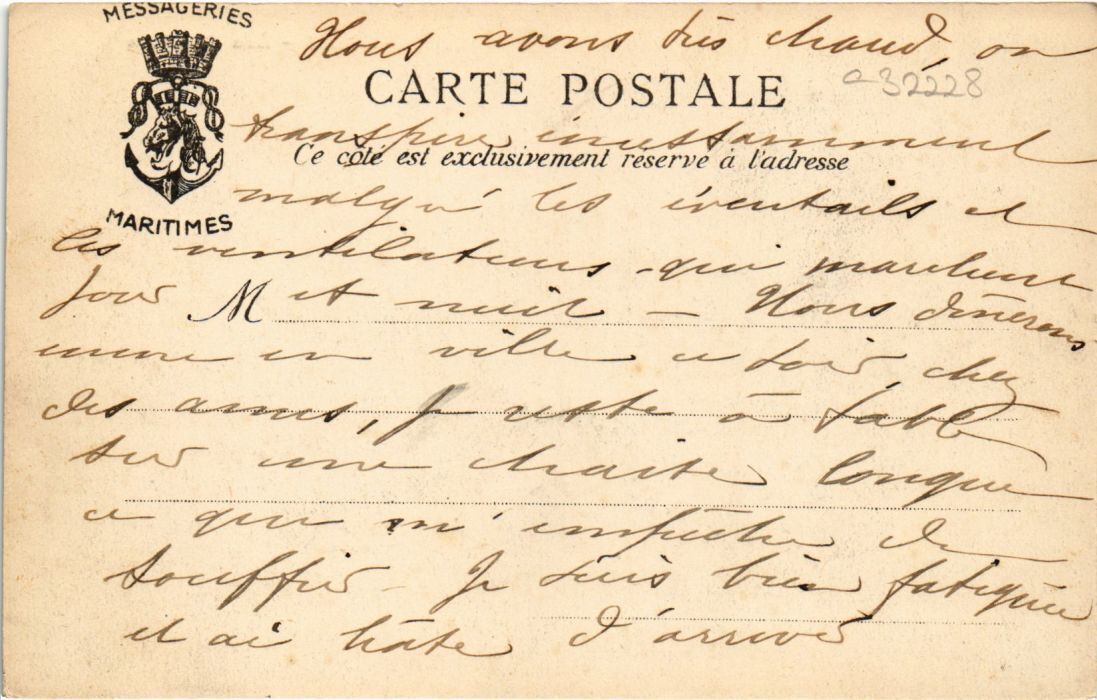 MESSAGERIES
Nous avons très chaud, on
CARTE POSTALE
032228
transpire incessamment
Ce côté est exclusivement réservé à l'adresse
malgré les éventails et
MARITIMES
les ventilateurs qui marchent
jour et nuit — Nous dînerons
M
encore en ville ce soir, chez
des amis, je reste à table
sur une chaise longue
ce qui m'empêche de
souffrir – Je suis bien fatiguée
et ai hâte d'arriver